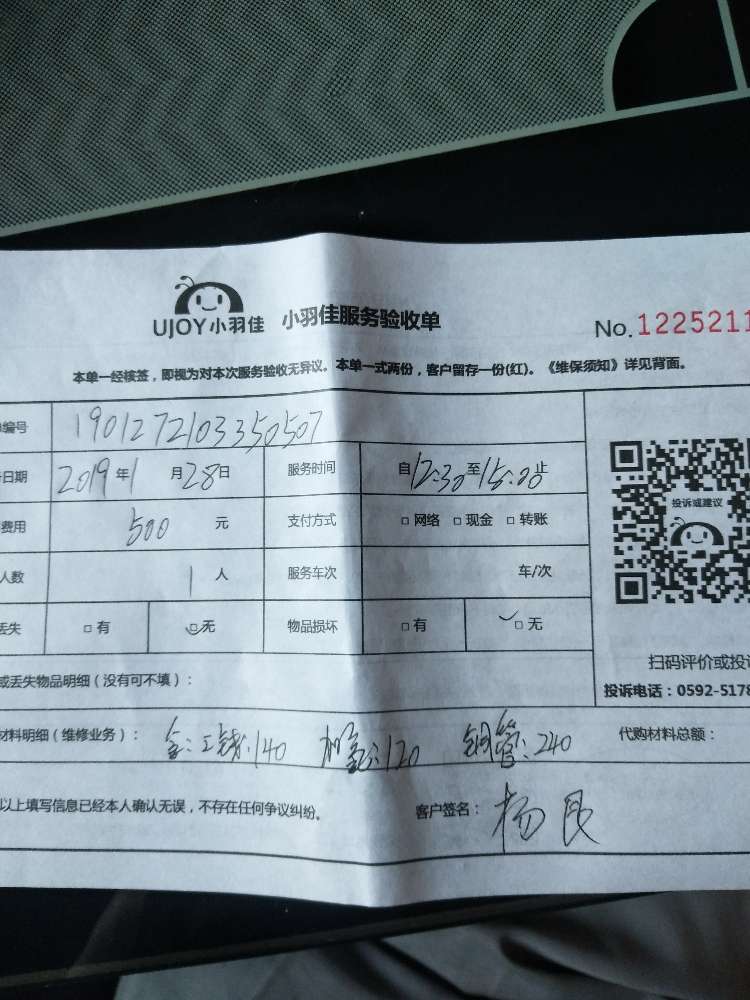 UJOY小羽佳 小羽佳服务验收单 No.1225211
本单一经核签，即视为对本次服务验收无异议。本单一式两份，客户留存一份(红)。《维保须知》详见背面。
编号 1901272103350507
日期 2019年1月28日 服务时间 自12:30至15:00止
费用 500 元 支付方式 □网络 □现金 □转账
人数 1人 服务车次 车/次
丢失 □有 □无 物品损坏 □有 □无
投诉或建议
扫码评价或投诉
或丢失物品明细（没有可不填）：
投诉电话：0592-5178
材料明细（维修业务）： 工钱:140 120 钢管:240 代购材料总额：
以上填写信息已经本人确认无误，不存在任何争议纠纷。 客户签名： 杨